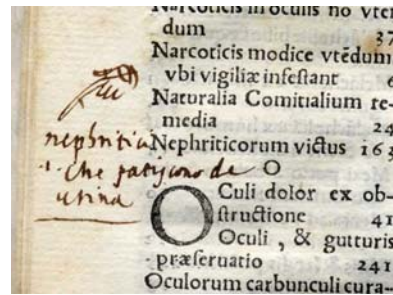 Narcoticis in oculis nō vten
dum 37
Narcoticis modice vtēdum
vbi vigiliæ infestant 6
Naturalia Comitialium re-
media 24
nephritici Nephriticorum victus 163
. che patiscono de O
urina OCuli dolor ex ob-
structione 41
Oculi , & gutturis
præseruatio 241
Oculorum carbunculi cura-